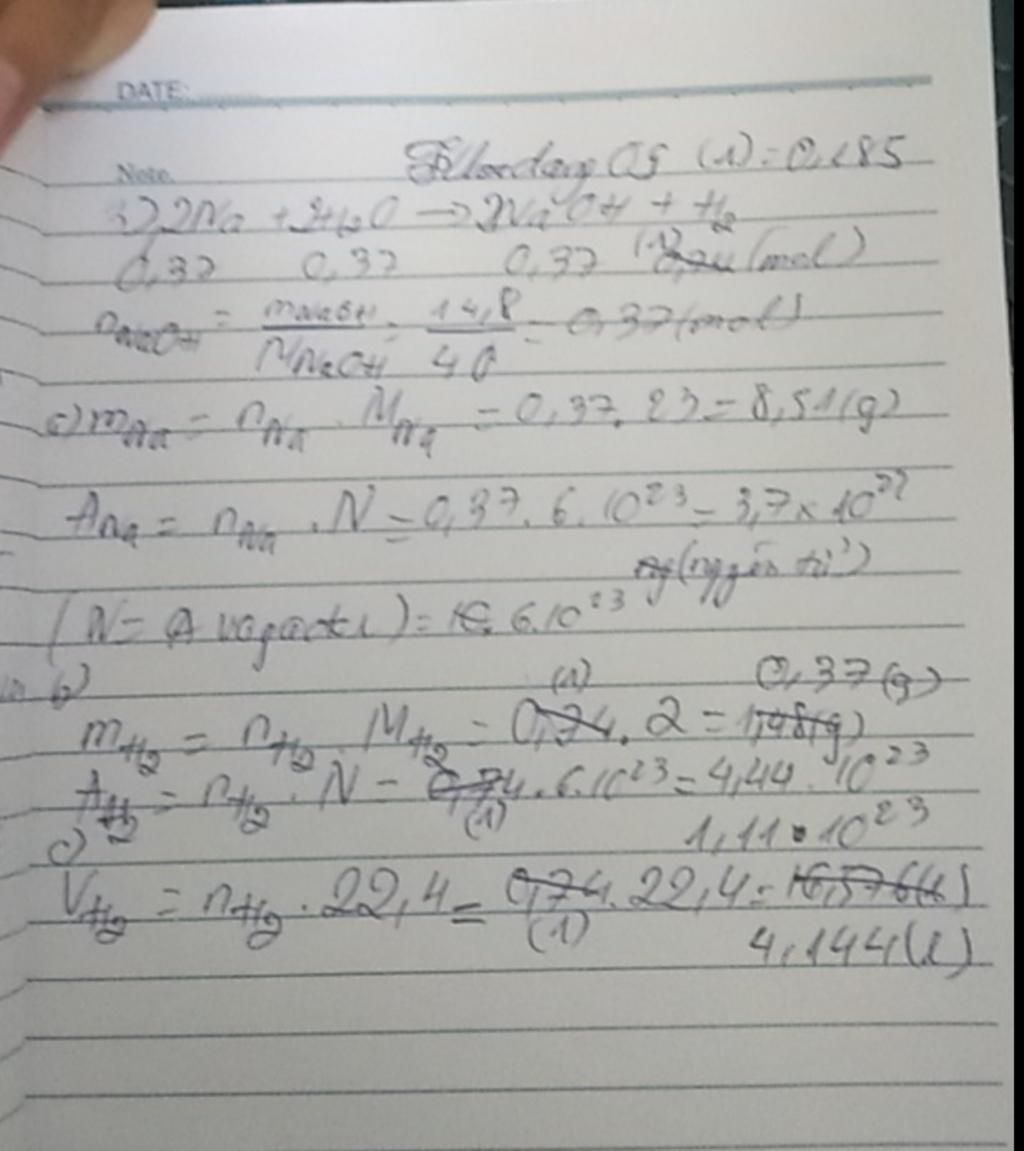 DATE:
Note. (1) = 0,185
2Na + 2H₂O → 2NaOH + H₂
0,37 0,37 0,37 (1) 0,74 (mol)
nNaOH = mNaOH / MNaOH = 14,8 / 40 = 0,37 (mol)
mNa = nNa . MNa = 0,37 . 23 = 8,51 (g)
ANa = nNa . N = 0,37 . 6 . 10²³ = 3,7 × 10²²
(nguyên tử)
(N = Avogadro) = 6.10²³
b) (1) 0,37 (g)
mH₂ = nH₂ . MH₂ = 0,74 . 2 = 1,48 (g)
AH₂ = nH₂ . N = 0,74 . 6.10²³ = 4,44 . 10²³
(1) 1,11 . 10²³
c)
VH₂ = nH₂ . 22,4 = 0,74 . 22,4 = 16,576 (l)
(1) 4,144 (l)